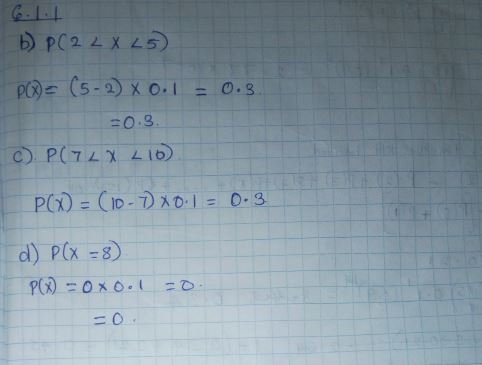 6.1.1
b) P(2 < x < 5)
P(x) = (5-2) × 0.1 = 0.3
= 0.3.
c) P(7 < x < 10)
P(x) = (10-7) × 0.1 = 0.3
d) P(x = 8)
P(x) = 0 × 0.1 = 0.
= 0.